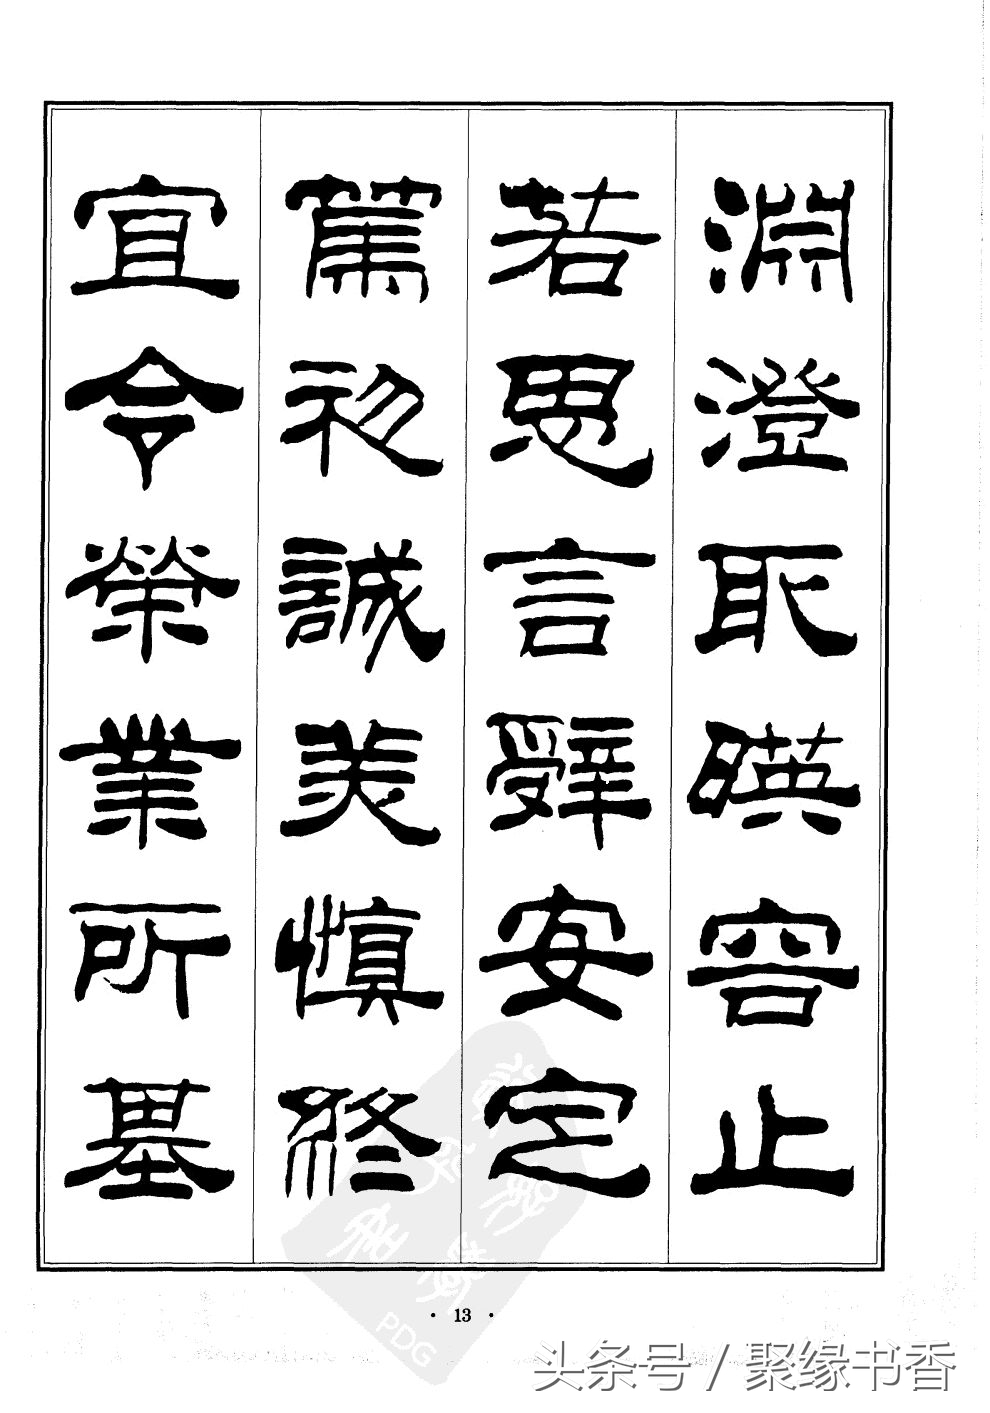 淵澄取暎容止
若思言辭安定
篤初誠美慎終
宜令榮業所基
· 13 ·
PDG
头条号 / 聚缘书香